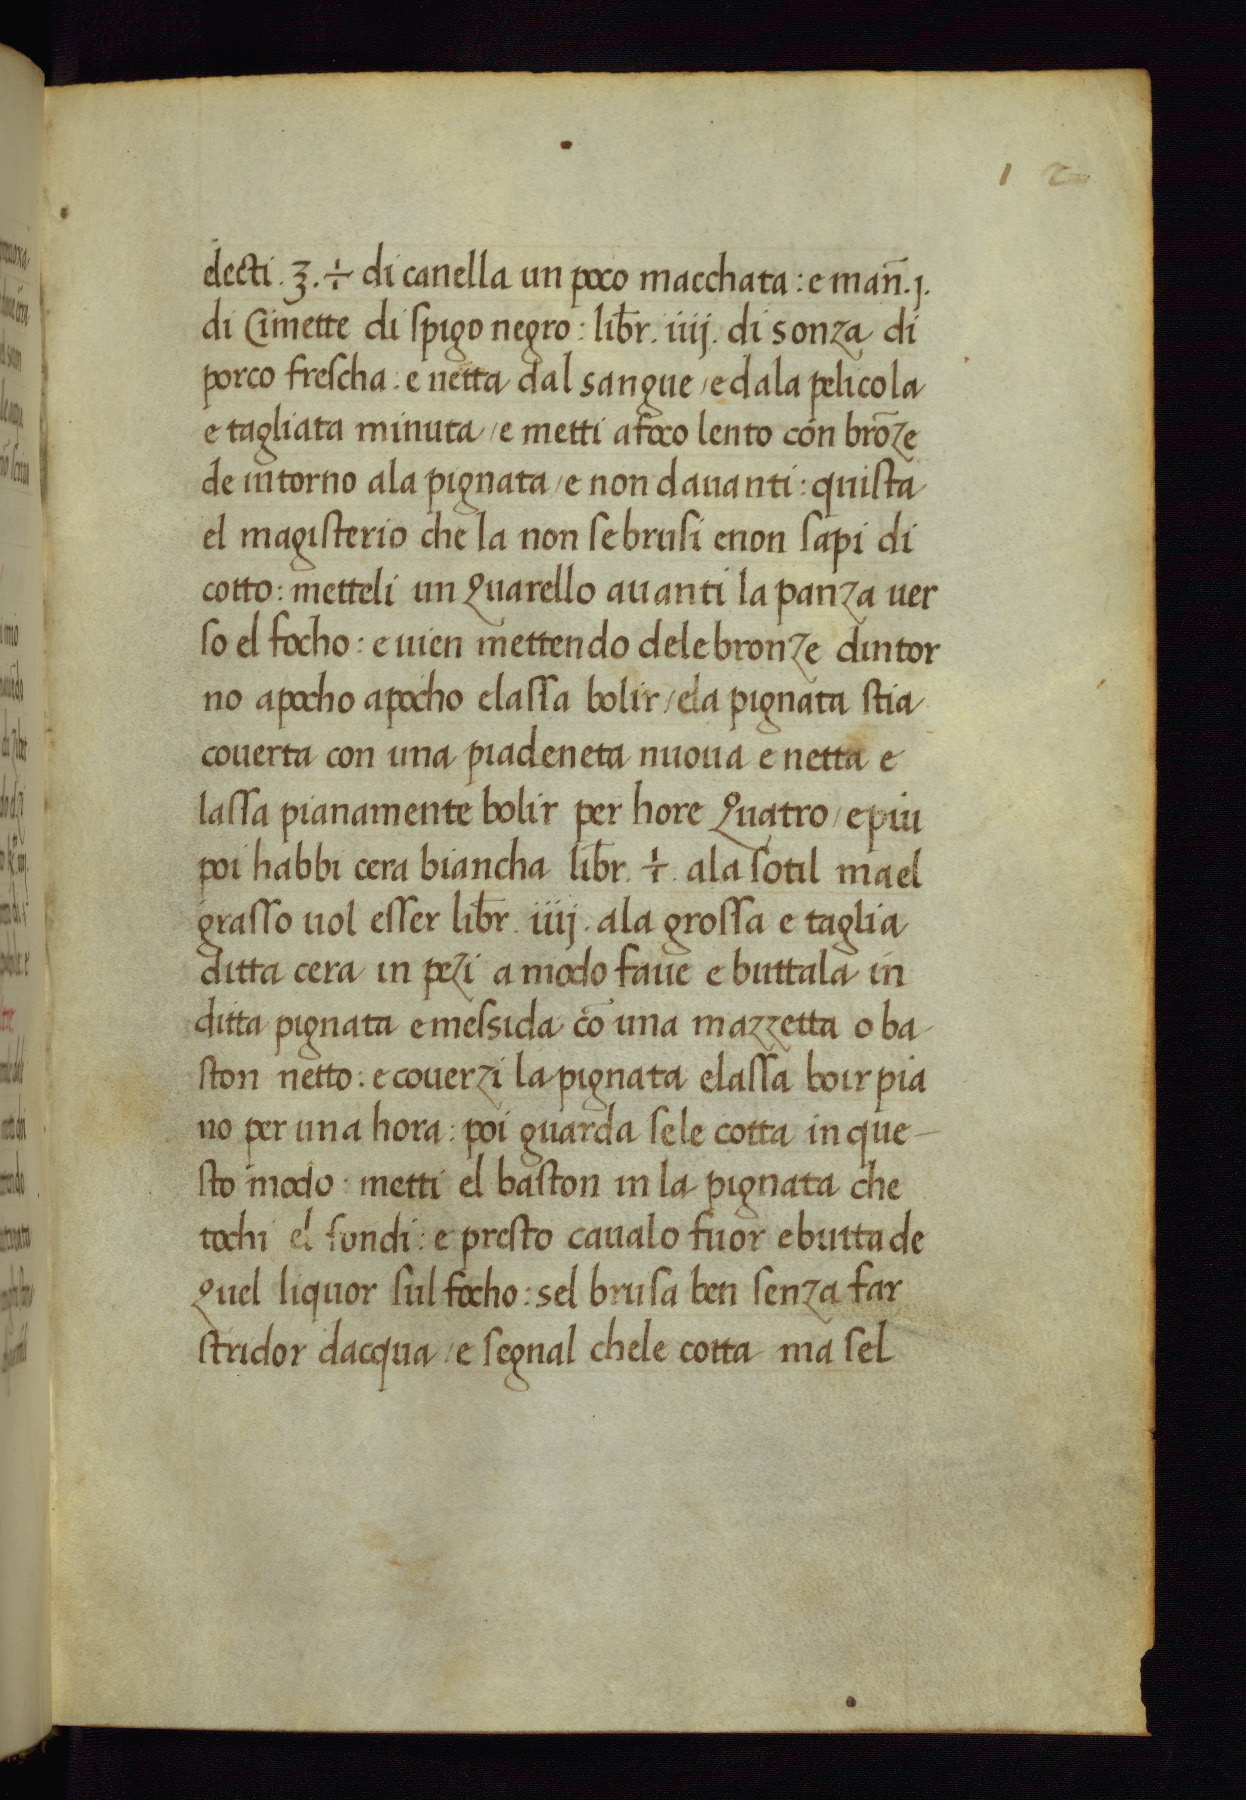 12
electi . ʒ . ÷ di canella un poco macchata : e man̄ . j .
di Cimette di spigo negro : libr̄ . iiij . di sonza di
porco frescha : e netta dal sangue / e dala pelicola
e tagliata minuta / e metti a foco lento con brōze
de intorno ala pignata / e non davanti : quista
el magisterio che la non se brusi e non sapi di
cotto : metteli un Quarello avanti la panza ver
so el focho : e vien mettendo dele bronze dintor
no apocho apocho e lassa bolir / e la pignata stia
coverta con una piadeneta nuova e netta e
lassa pianamente bolir per hore Quatro / e piu
poi habbi cera biancha libr̄ . ÷ . ala sotil ma el
grasso vol esser libr̄ . iiij . ala grossa e taglia
ditta cera in pezi a modo fave e buttala in
ditta pignata e messida cō una mazzetta o ba
ston netto : e coverzi la pignata e lassa boir pia
no per una hora : poi guarda se le cotta in que-
sto modo : metti el baston in la pignata che
tochi el fondi : e presto cavalo fuor e butta de
Quel liquor sul focho : sel brusa ben senza far
stridor dacqua / e segnal chele cotta ma sel